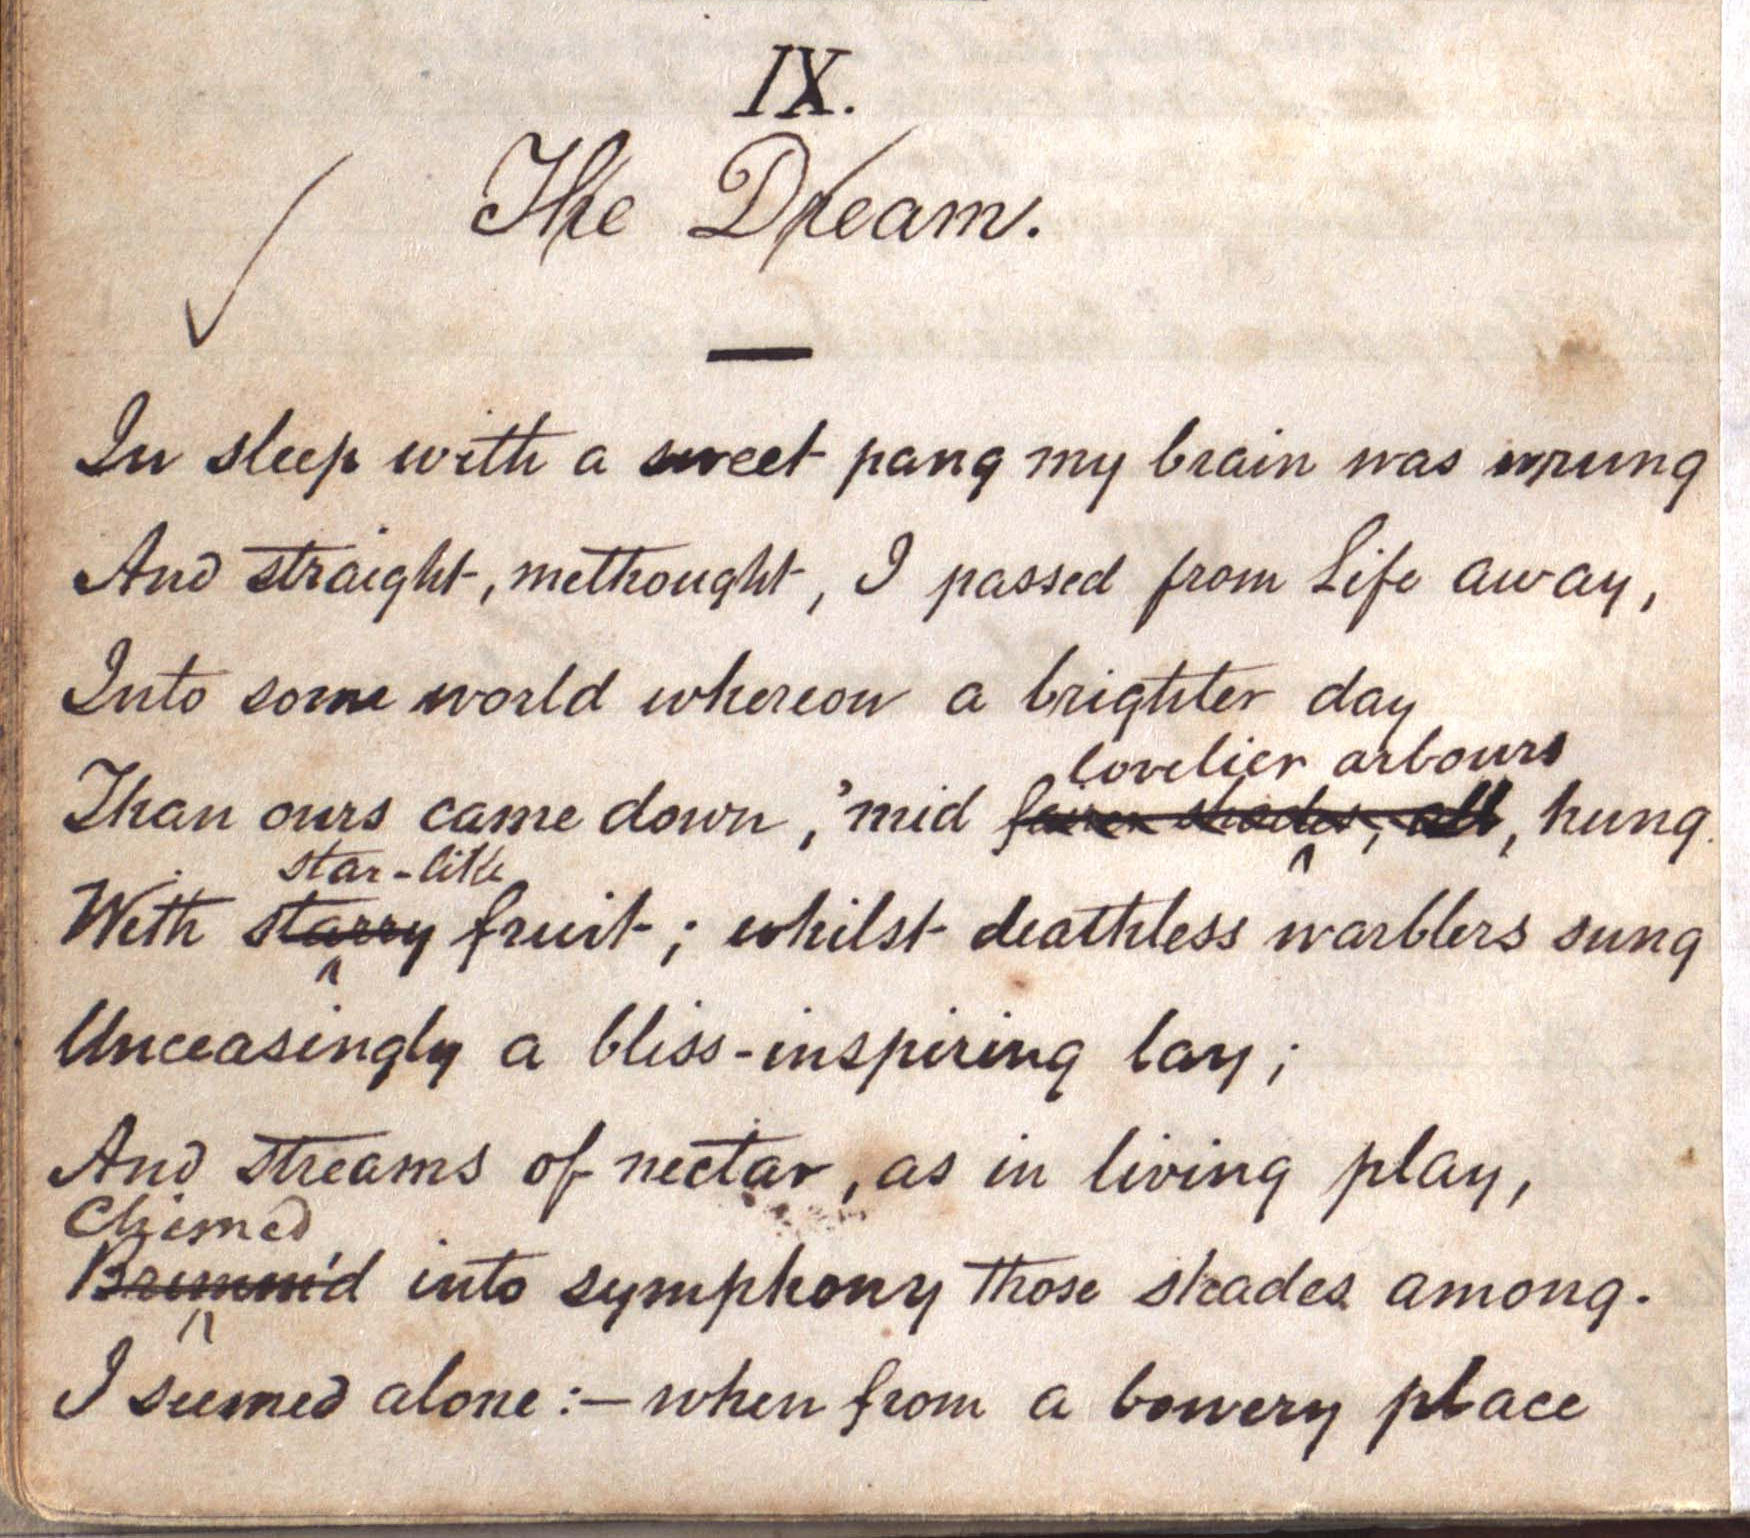 IX.
The Dream.
In sleep with a sweet pang my brain was wrung
And straight, methought, I passed from Life away,
Into some world whereon a brighter day
lovelier arbours
Than ours came down, 'mid fairer shades, all, hung
star-like
With starry fruit; whilst deathless warblers sung
Unceasingly a bliss-inspiring lay;
And streams of nectar, as in living play,
Chimed
Brimm'd into symphony those shades among.
I seemed alone:—when from a bowery place